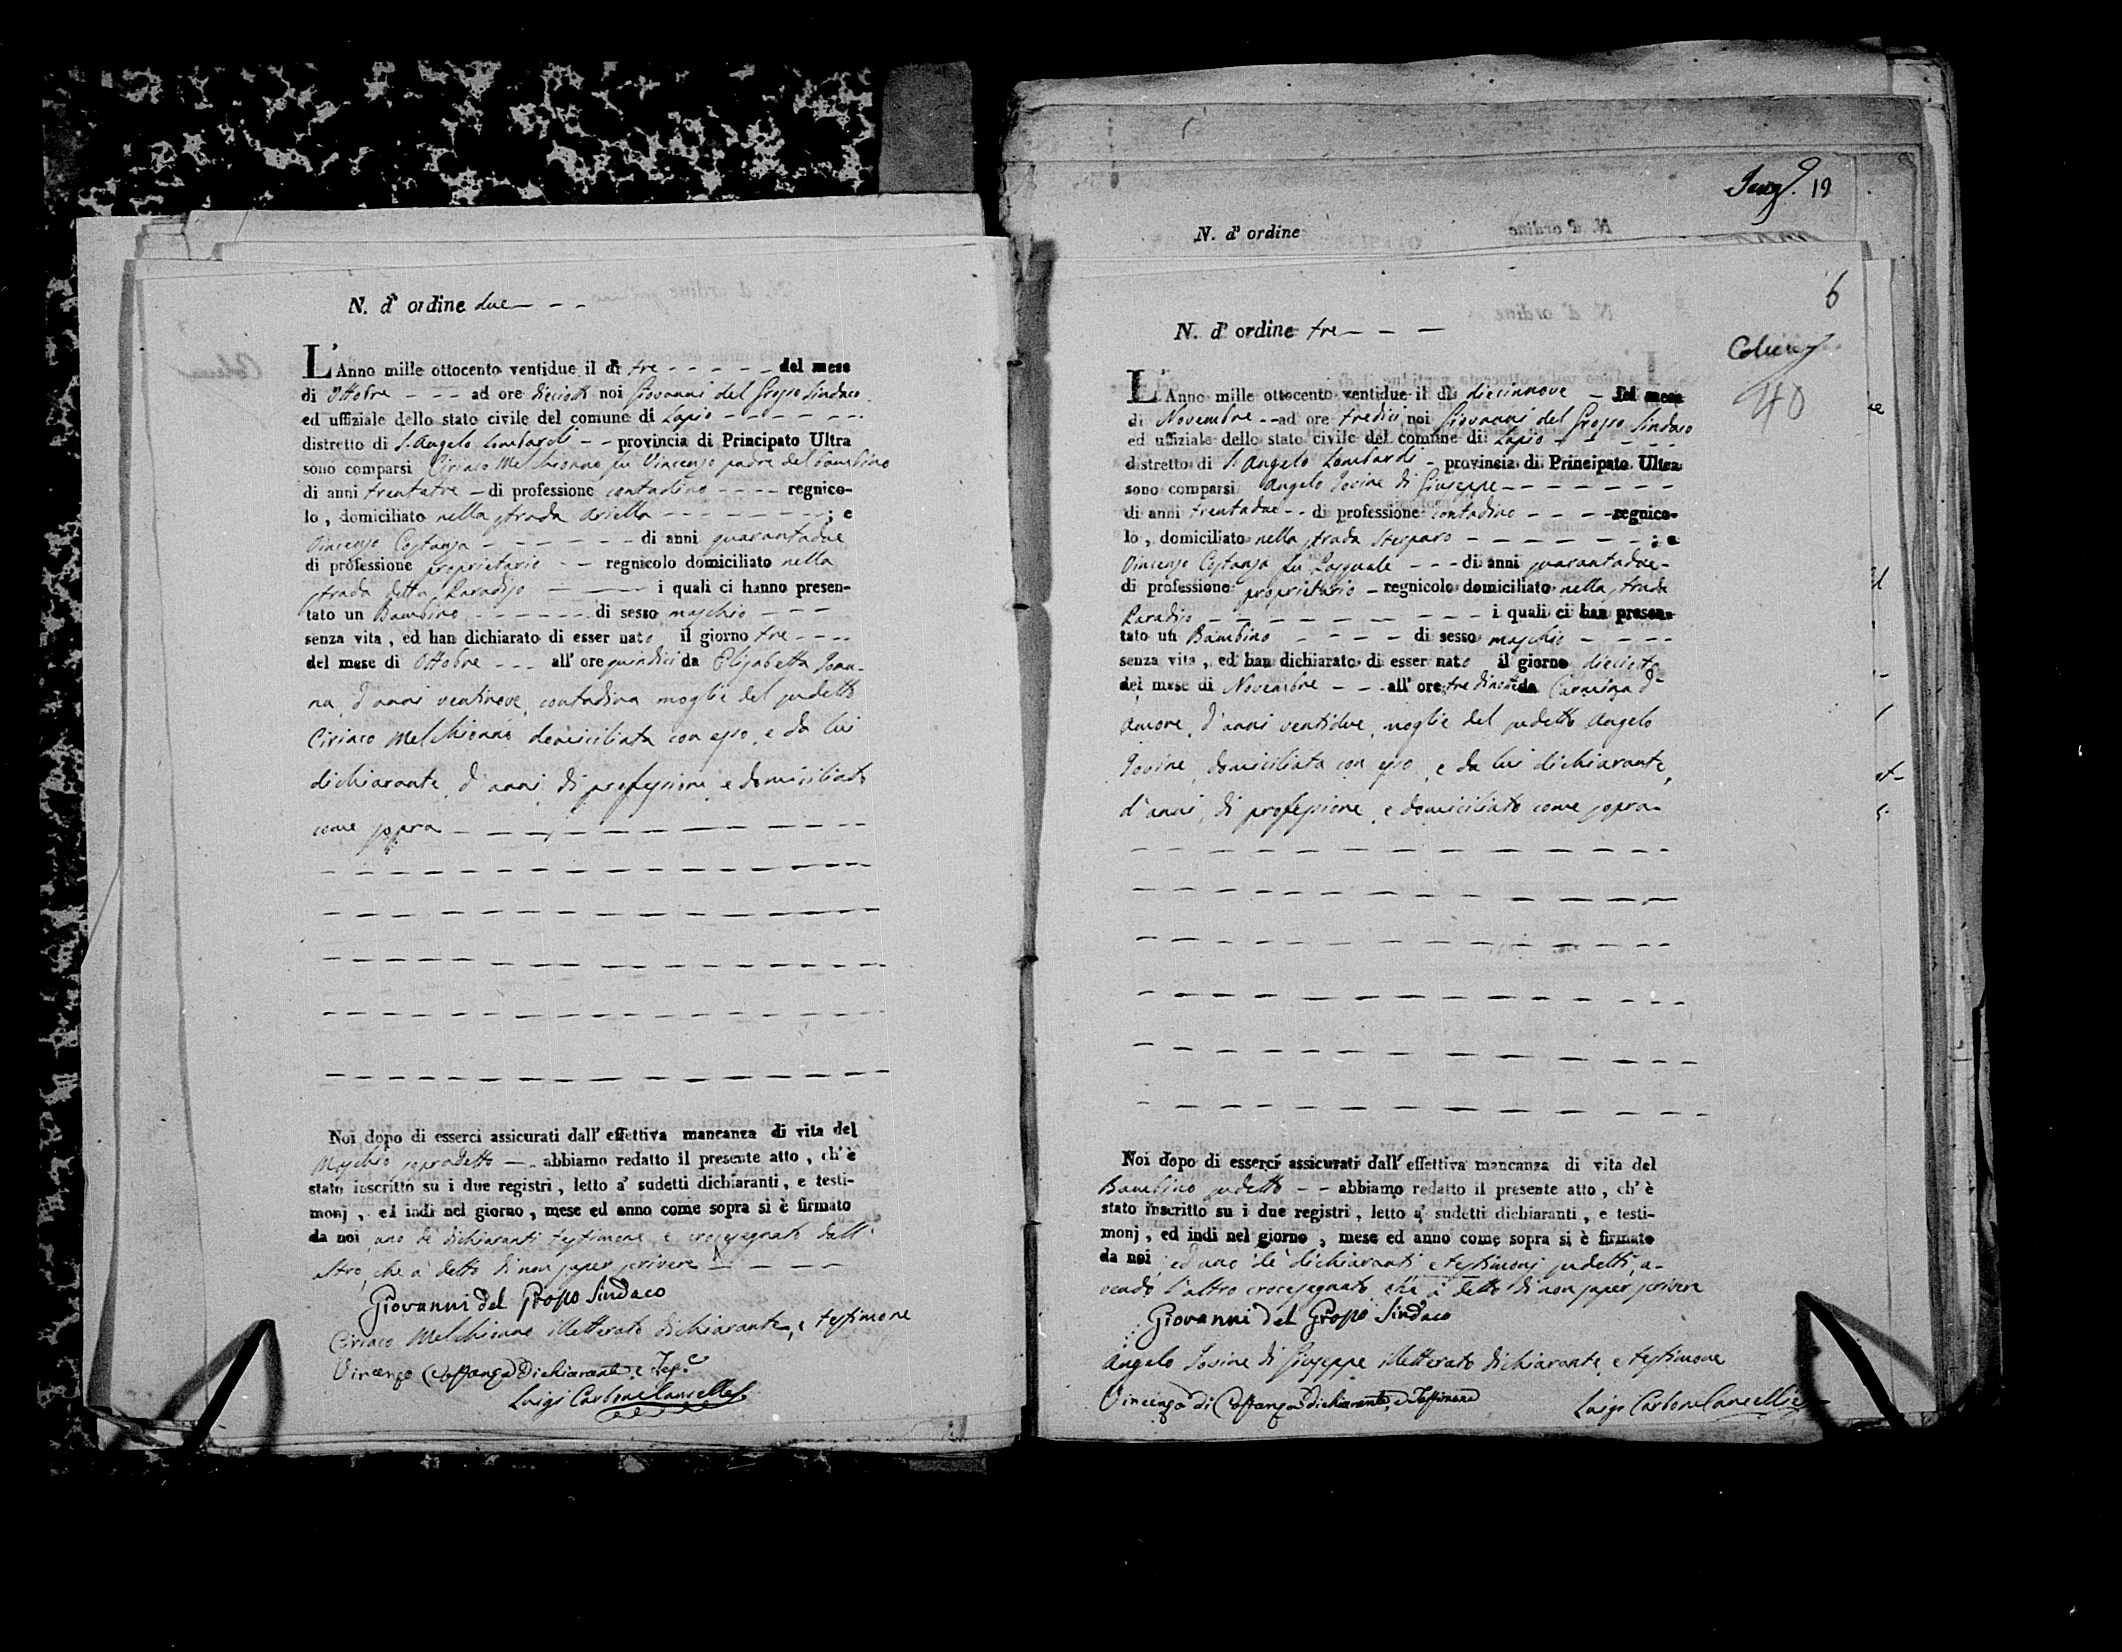 N. d' ordine due - - -
L'Anno mille ottocento ventidue il dì tre - - - - - del mese
di Ottobre - - - ad ore dieciotto noi Giovanni del Grosso Sindaco
ed uffiziale dello stato civile del comune di Lapio - - - - - -
distretto di S. Angelo Lombardi - - provincia di Principato Ultra
sono comparsi Ciriaco Melchionno fu Vincenzo padre del bambino
di anni trentatre - di professione contadino - - - - regnico-
lo, domiciliato nella strada Ariella - - - - - - - - ; e
Vincenzo Costanza - - - - - - di anni quarantadue
di professione proprietario - - regnicolo domiciliato nella
strada detta Paradiso - - - i quali ci hanno presen-
tato un Bambino - - - - - - di sesso maschio - - -
senza vita, ed han dichiarato di esser nato il giorno tre - - - -
del mese di Ottobre - - - all' ore quindici da Elisabetta
na, d'anni ventinove, contadina moglie del sudetto
Ciriaco Melchionno domiciliata con esso, e da lui
dichiarante, d'anni, di professione, e domiciliato
come sopra - - - - - - - - - - -
Noi dopo di esserci assicurati dall' effettiva mancanza di vita del
Maschio sopradetto - - abbiamo redatto il presente atto, ch' è
stato inscritto su i due registri, letto a' sudetti dichiaranti, e testi-
monj, ed indi nel giorno, mese ed anno come sopra si è firmato
da noi uno de' dichiaranti testimone, e crocesegnato dall'
altro, che à detto di non saper scrivere - - - - -
Giovanni del Grosso Sindaco
Ciriaco Melchionno illetterato dichiarante, e testimone
Vincenzo Costanza Dichiarante e
Luigi Carbone Cancelle
Cong. 19
N. d' ordine
6
N. d' ordine tre - - -
40
L'Anno mille ottocento ventidue il dì diecinnove - del mese
di Novembre - - ad ore tredici noi Giovanni del Grosso Sindaco
ed uffiziale dello stato civile del comune di Lapio - - - - -
distretto di S. Angelo Lombardi - provincia di Principato Ultra
sono comparsi Angelo Iovine di Giuseppe - - - - - - -
di anni trentadue - - di professione contadino - - - - regnico-
lo, domiciliato nella strada Sterparo - - - - - - - ; e
Vincenzo Costanza fu Pasquale - - - di anni quarantadue -
di professione proprietario - regnicolo domiciliato nella strada
Paradiso - - - - - - - - - i quali ci han presen-
tato un Bambino - - - - - di sesso maschio - - - -
senza vita, ed han dichiarato di esser nato il giorno dieciotto
del mese di Novembre - - - all' ore tre da Carmina d'
Amore, d'anni ventidue, moglie del sudetto Angelo
Iovine, domiciliata con esso, e da lui dichiarante,
d'anni, di professione, e domiciliato come sopra -
Noi dopo di esserci assicurati dall' effettiva mancanza di vita del
Bambino sudetto - - abbiamo redatto il presente atto, ch' è
stato inscritto su i due registri, letto a' sudetti dichiaranti, e testi-
monj, ed indi nel giorno, mese ed anno come sopra si è firmato
da noi, ed uno de' dichiaranti e testimonj sudetti, a-
vendo l'altro crocesegnato, che à detto di non saper scrivere
Giovanni del Grosso Sindaco
Angelo Iovine di Giuseppe illetterato dichiarante, e testimone
Vincenzo di Costanza dichiarante, e Testimone
Luigi Carbone Cancellie